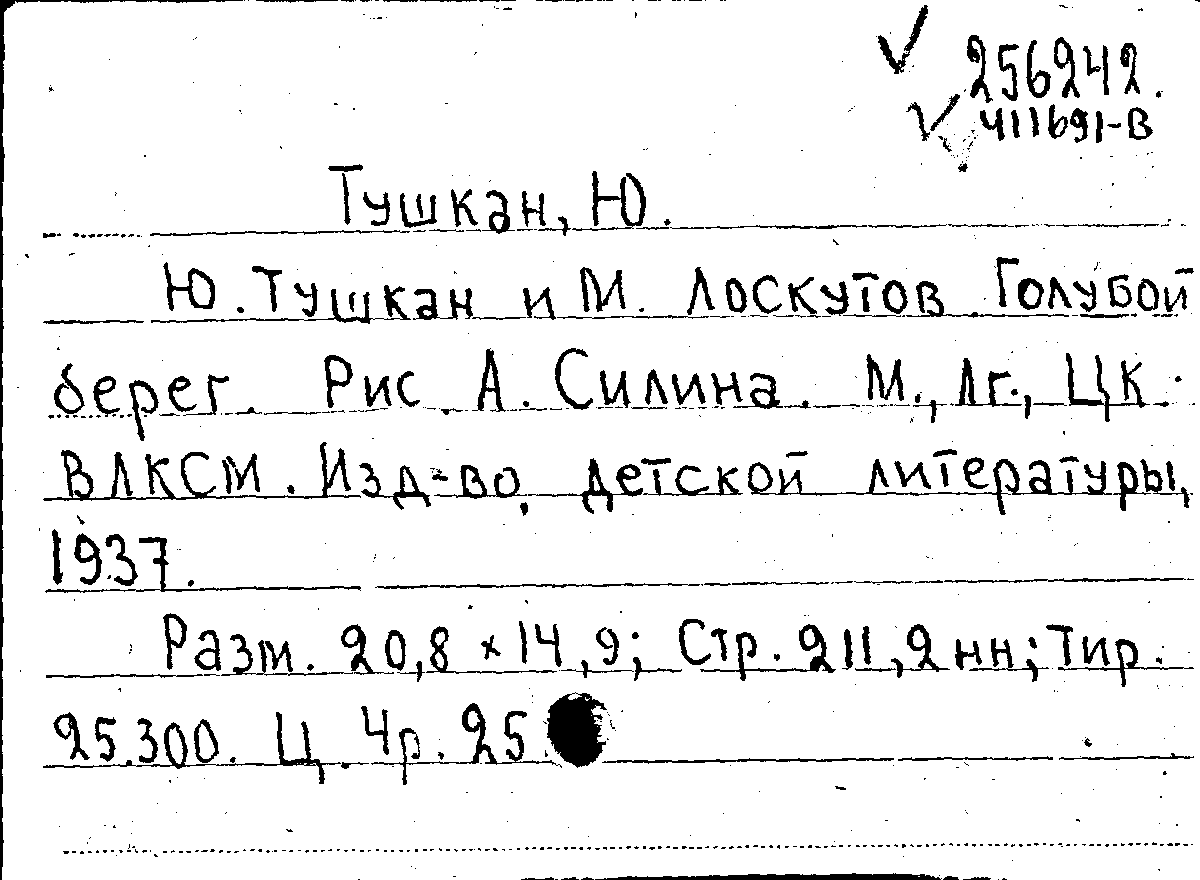 256242.
411691-В
Тушкан, Ю.
Ю. Тушкан и М. Лоскутов. Голубой
берег. Рис. А. Силина. М., Лг., ЦК.
ВЛКСМ. Изд-во, детской литературы,
1937.
Разм. 20,8 × 14,9; Стр. 211,2нн; Тир.
25.300. Ц. 4р. 25